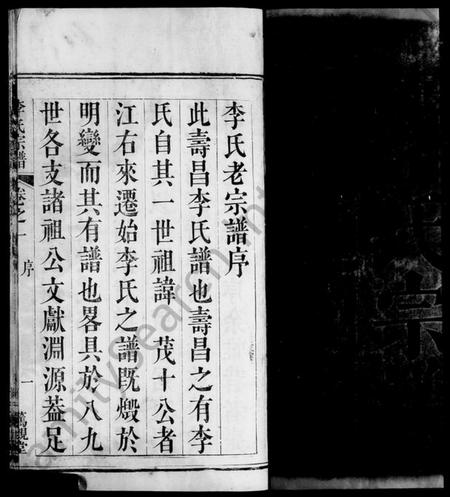 李氏老宗譜序
此壽昌李氏譜也壽昌之有李
氏自其一世祖諱 茂十公者
江右來遷始李氏之譜既燬於
明變而其有譜也畧具於八九
世各支諸祖公文獻淵源葢足
李氏宗譜 卷之一 序 一 萬規堂